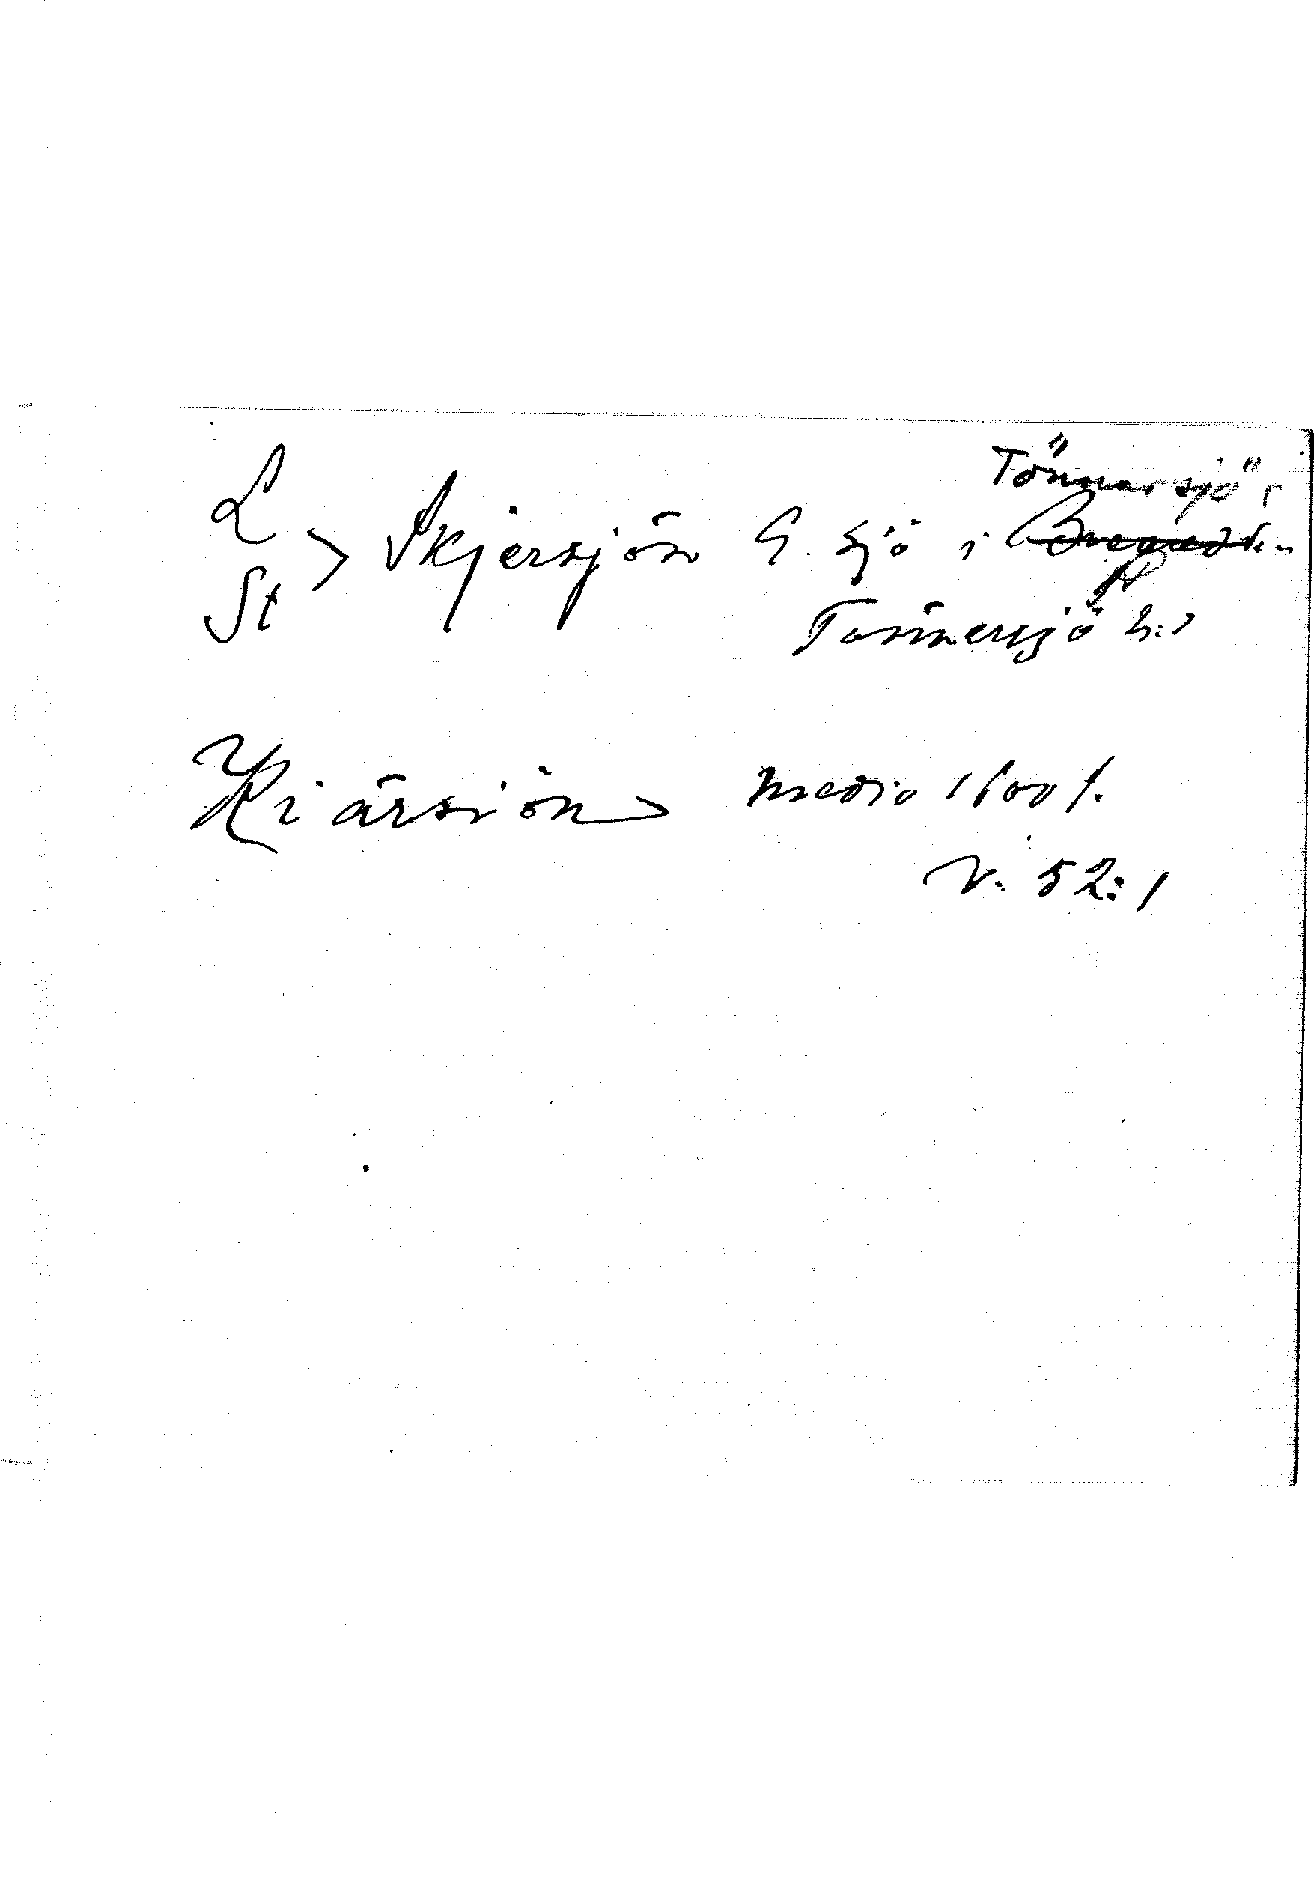 Tönnarsjö
L
St > Skjersjön G. sjö i
Tönnersjö h:d
Kiärsiön medio 1600 t.
V. 52:1